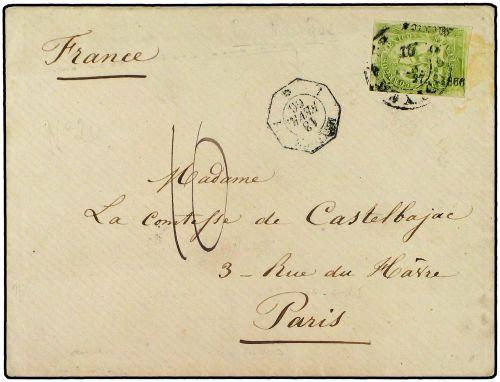 France
1866
18
FEVR
66
10
Madame
La Comtesse de Castelbajac
3 - Rue du Hâvre
Paris